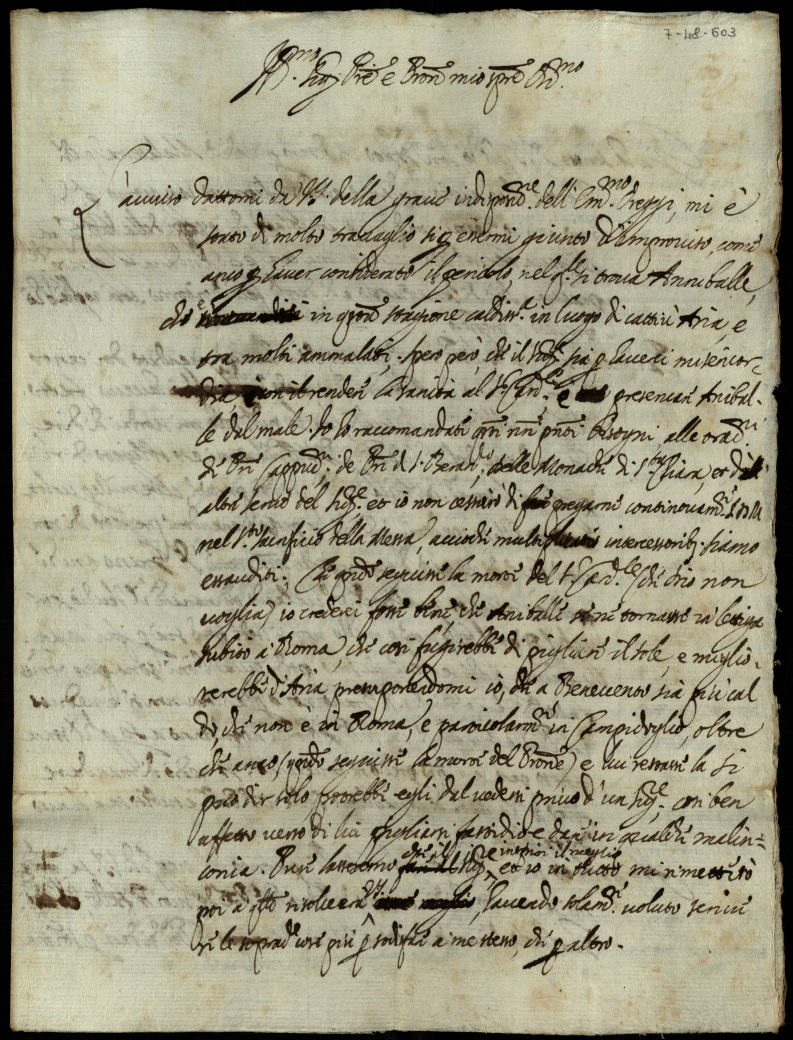 7-48-603
Ill.mo Sig.r Pre e Pron mio sempre Oss.mo
L'auuiso dattomi da VS. della graue indispositne dell'Em.mo mi è
stato di molto trauaglio sì p essermi giunto d'improuiso, come
anco p hauer considerato il pericolo, nel q.le si troua Anniballe,
che è in questa stagione caldiss.a in luogo di cattiu' Aria, e
tra molti ammalati. Spero però, che il Sig.re sia p hauerci misericor-
dia, con il render la sanità al S.r Card.le e preseruar Anibal-
le dal male. Io lo raccomandati bisogni alle orationi
de Pri Cappucini de Pri di S. delle Monache di S.ta Chiara, et
altri serui del Sig.re, et io non cesserò di pregarne continouam.te
nel S.to Sacrificio della Messa, acciochè intercessorib. siamo
essauditi. Che quando seguisse la morte del S.r Card.le (che Dio non
uoglia) io crederei fosse bene, che Aniballe se ne tornasse in letiga
subito a Roma, che così fugirebbe di pigliare il sole, e miglio-
rerebbe d'Aria, presuponendomi io, che a Beneuento sia più cal
do, che non è in Roma, e particolarm.te in Campidoglio, oltre
che anco (quando seguisse la morte del Prone) e lui restasse la si
può dir solo potrebbe egli dal uedersi priuo d'un Sig.re così ben
affetto uerso di lui pigliarsi fastidio e dar in qualche malin=
conia. Pure lasseremo che il Sig.re inspiri il meglio, et io in tutto mi rimetterò
poi a q.to risoluerà VS. hauendo solam.te uoluto scriue
re le sopradte cose più p sodisfare a me stesso, che p altro.